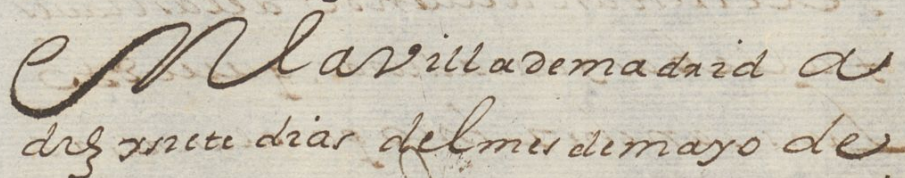 En la villa de madrid a
diez y siete dias del mes de mayo de